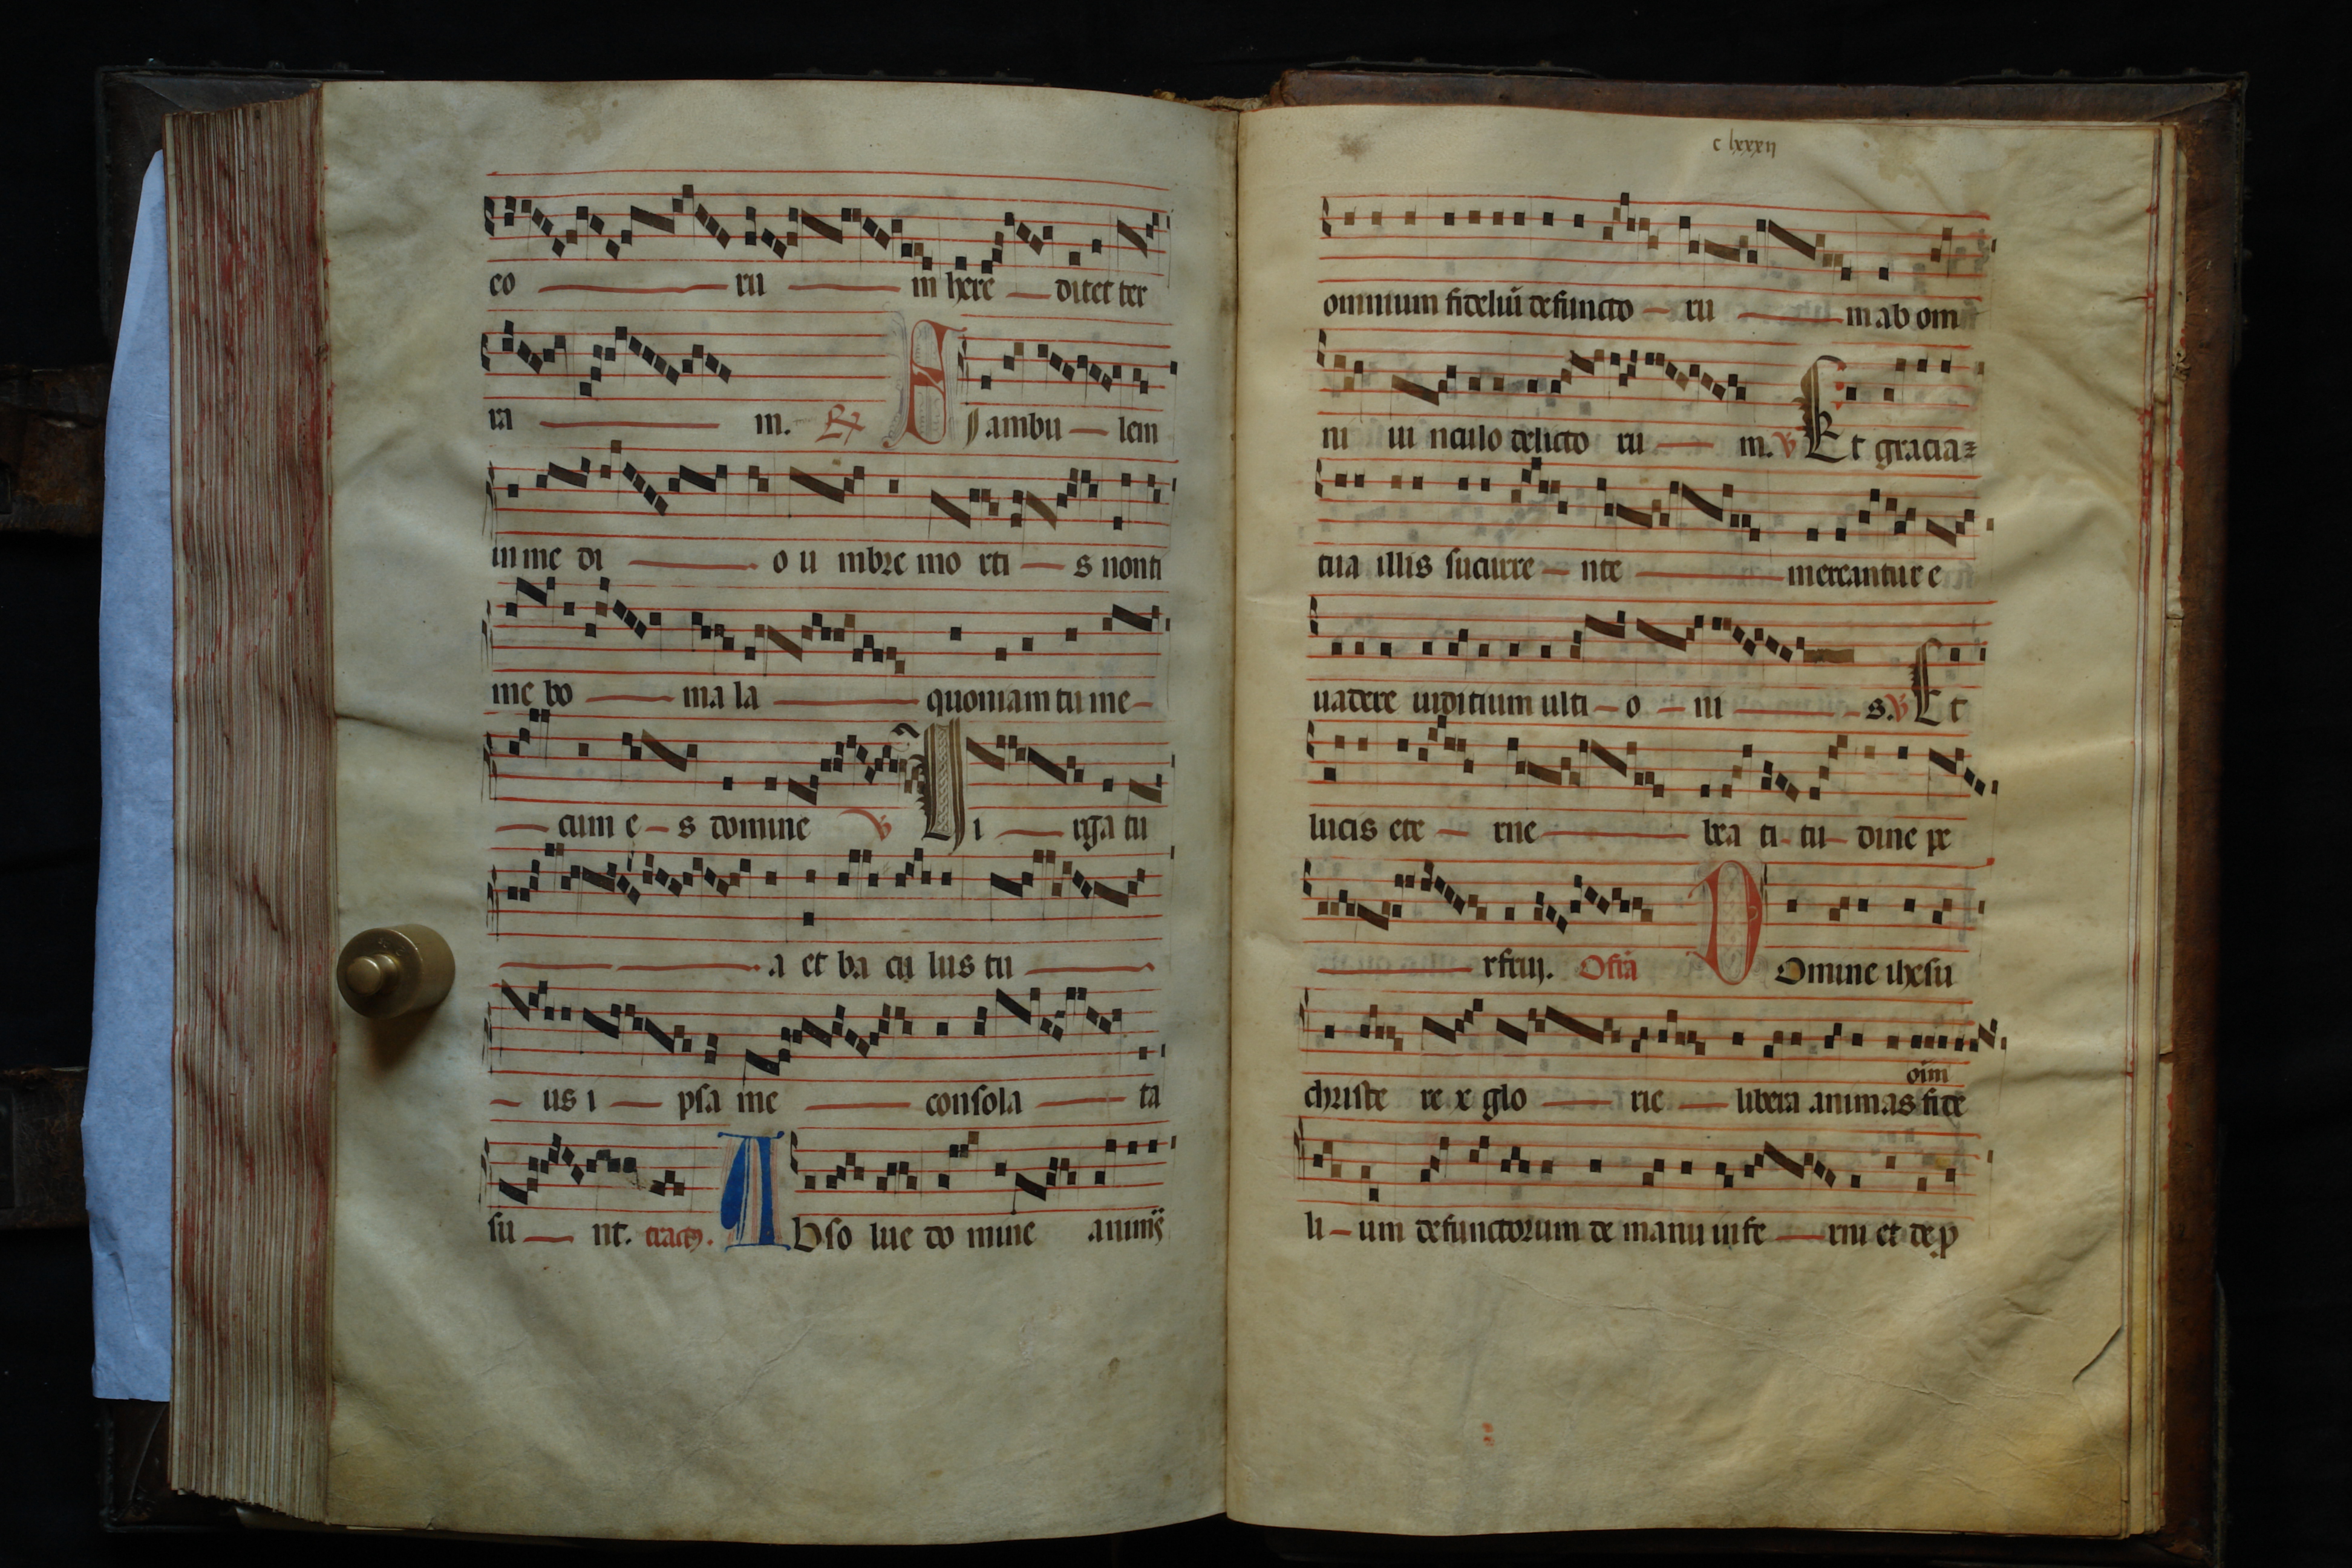 co ru m here ditet ter
ra m. R Si ambu lem
in me di o u mbre mo rti s non ti
me bo ma la quoniam tu me
cum e s domine V Vi rga tu
a et ba cu lus tu
us i psa me consola ta
su nt. tract9. A Bso lue do mine
c lxxxij
omnium fideliū defuncto ru m ab om
ni ui nculo delicto ru m. V Et gracia
tua illis sucurre nte mereantur e
uadere iuditium ulti o ni s. V Et
lucis ete rne bea ti tu dine pe
rfrui. Ofrā D Omine ihesu
oīm
christe re x glo rie libera animas fide
li um defunctorum de manu infe rni et de p